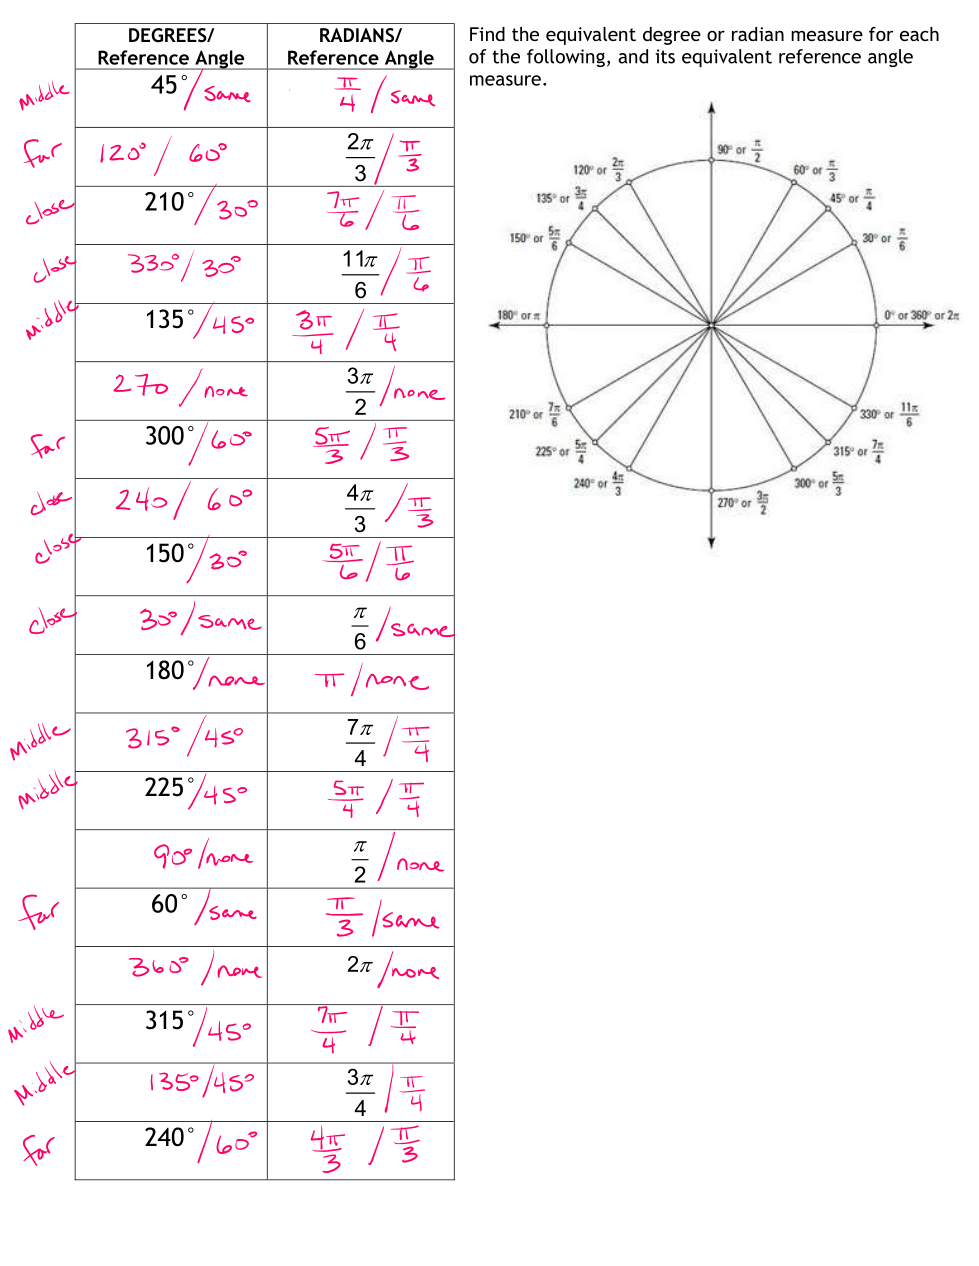 DEGREES/ Reference Angle | RADIANS/ Reference Angle
Middle 45°/same | π/4 / same
far 120°/ 60° | 2π/3 / π/3
close 210°/30° | 7π/6 / π/6
close 330°/ 30° | 11π/6 / π/6
Middle 135°/45° | 3π/4 / π/4
270 /none | 3π/2 /none
far 300°/60° | 5π/3 / π/3
close 240/ 60° | 4π/3 / π/3
close 150°/30° | 5π/6 / π/6
close 30°/same | π/6 /same
180°/none | π/none
Middle 315°/45° | 7π/4 / π/4
Middle 225°/45° | 5π/4 / π/4
90°/none | π/2 / none
far 60° /same | π/3 /same
360° /none | 2π /none
Middle 315°/45° | 7π/4 / π/4
Middle 135°/45° | 3π/4 / π/4
far 240°/60° | 4π/3 / π/3
Find the equivalent degree or radian measure for each
of the following, and its equivalent reference angle
measure.
90° or π/2
120° or 2π/3
60° or π/3
135° or 3π/4
45° or π/4
150° or 5π/6
30° or π/6
180° or π
0° or 360° or 2π
210° or 7π/6
330° or 11π/6
225° or 5π/4
315° or 7π/4
240° or 4π/3
300° or 5π/3
270° or 3π/2